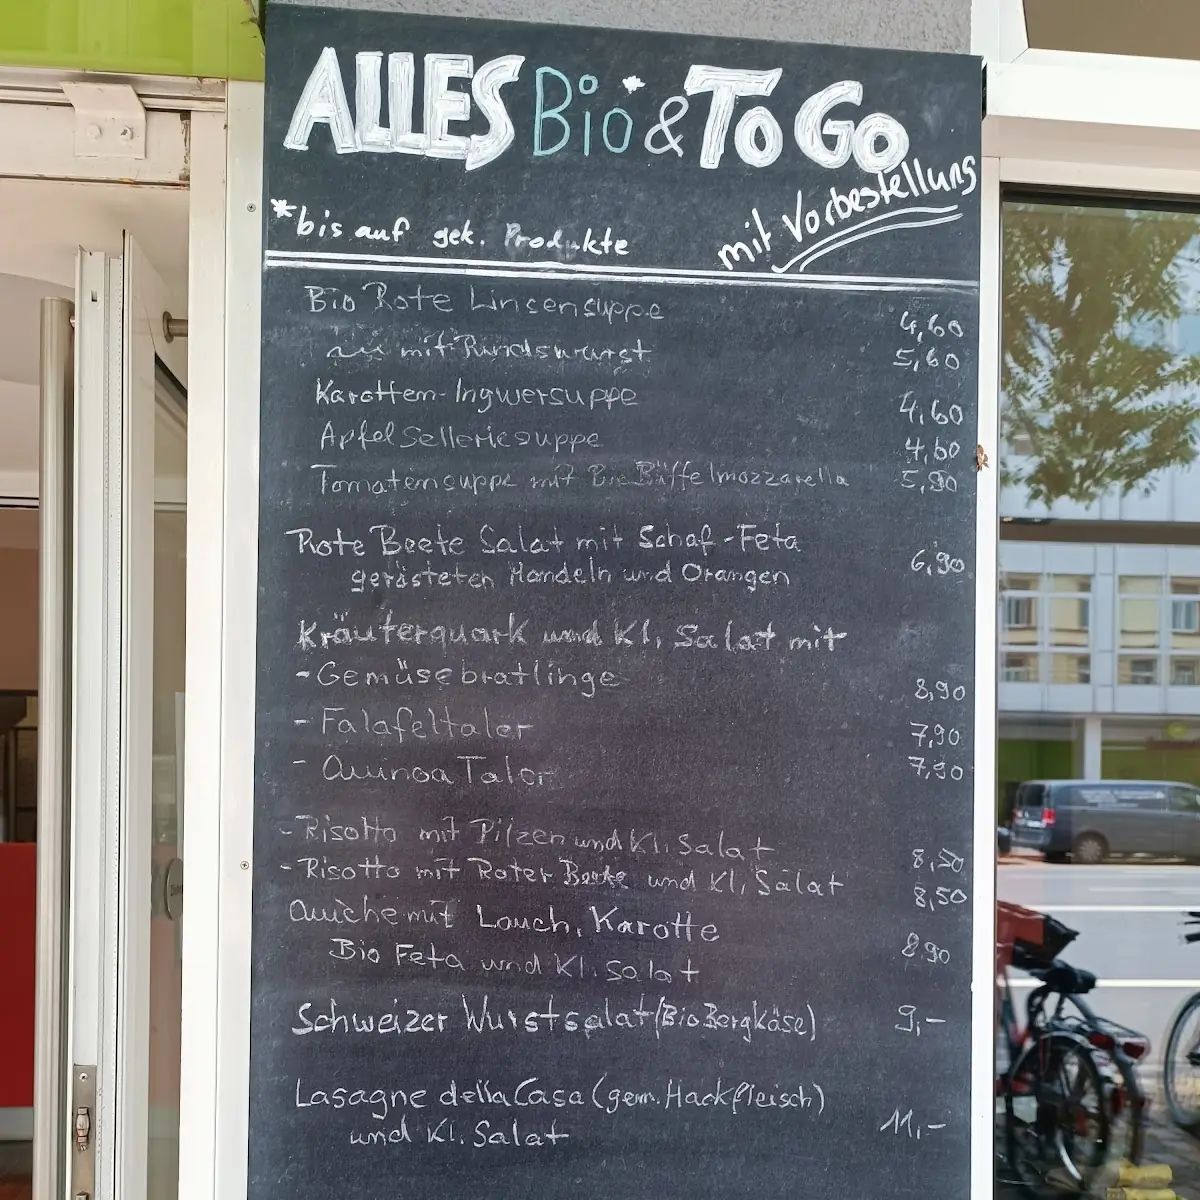 ALLES Bio* & TO GO
*bis auf gek. Produkte
mit Vorbestellung
Bio Rote Linsensuppe 4,60
mit Rindswurst 5,60
Karotten-Ingwersuppe 4,60
Apfel Selleriesuppe 4,60
Tomatensuppe mit Bio Büffelmozzarella 5,90
Rote Beete Salat mit Schaf-Feta
gerösteten Mandeln und Orangen 6,90
Kräuterquark und Kl. Salat mit
- Gemüsebratlinge 8,90
- Falafeltaler 7,90
- Quinoa Taler 7,90
- Risotto mit Pilzen und Kl. Salat 8,50
- Risotto mit Roter Beete und Kl. Salat 8,50
Quiche mit Lauch, Karotte
Bio Feta und Kl. Salat 8.90
Schweizer Wurstsalat (Bio Bergkäse) 9,-
Lasagne della Casa (gem. Hackfleisch)
und Kl. Salat 11,-